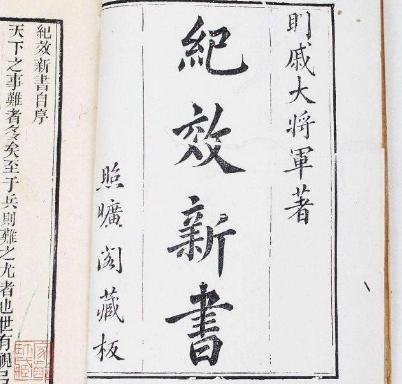 明戚大將軍著
紀效新書
照曠閣藏板
紀效新書自序
天下之事難者令矣至于兵則難之尤者也世有